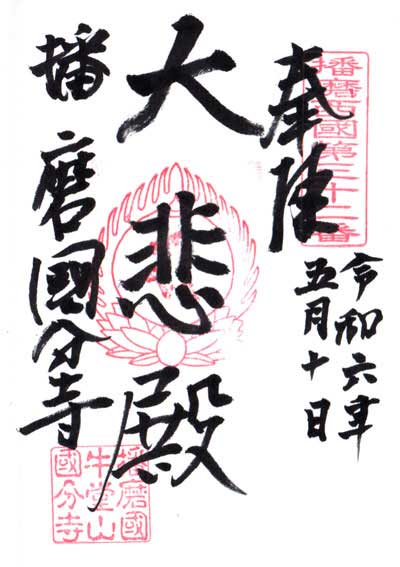 播磨西國第三十二番
奉拝
令和六年
五月十日
大悲殿
播磨國分寺
播磨國
牛堂山
國分寺